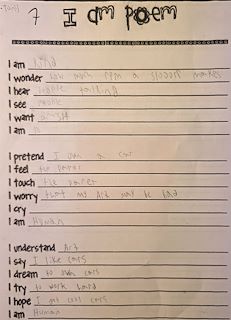 7 I am poem
I am
I wonder how much ppm a 5000 makes
I hear people talking
I see people
I want
I am
I pretend I am a car
I feel the paper
I touch the paper
I worry that my Art may be bad
I cry
I am Human
I understand Art
I say I like cars
I dream to own cars
I try to work hard
I hope I get cool cars
I am Human